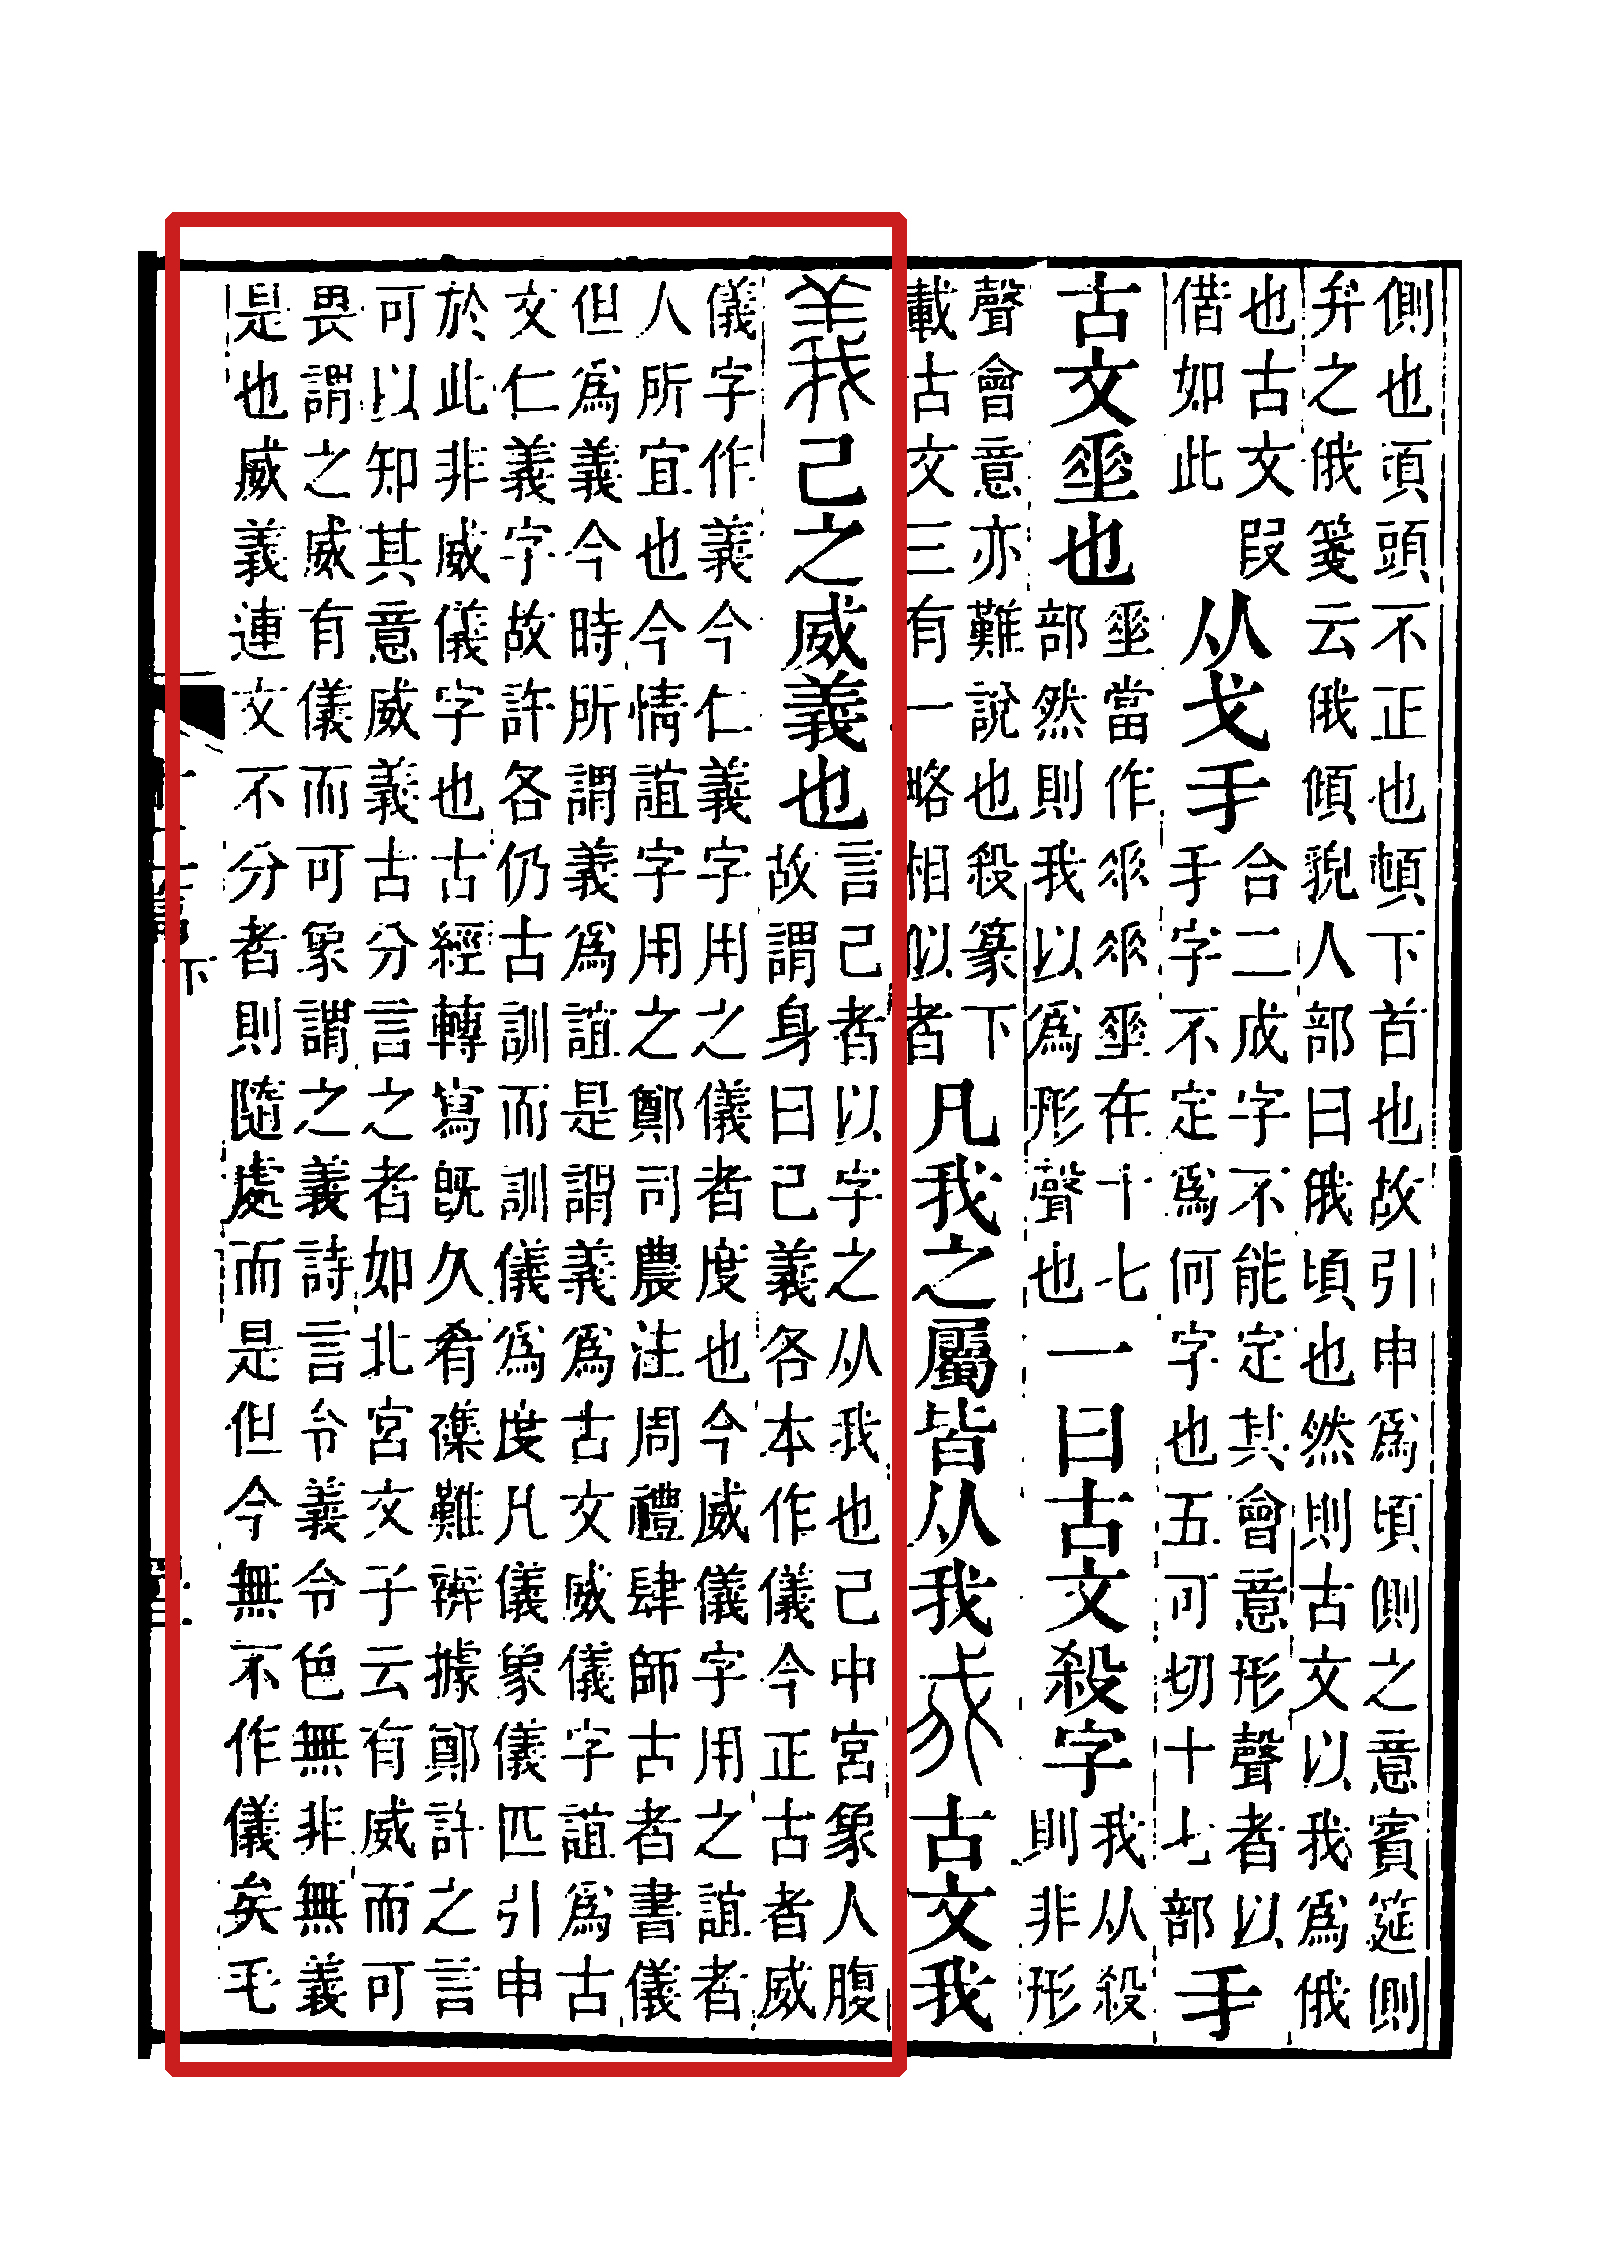 側也頃頭不正也頓下首也故引申爲頃側之意賓筵側
弁之俄箋云俄傾貌人部曰俄頃也然則古文以我爲俄
也古文叚
借如此
从戈手
合二成字不能定其會意形聲者以
手字不定爲何字也五可切十七部
手
古文𡍮也
𡍮當作𠂹𠂹𡍮在十七
部然則我以爲形聲也
一曰古文殺字
我从殺
則非形
聲會意亦難說也殺篆下
載古文三有一略相似者
凡我之屬皆从我
𢦠古文我
義己之威義也
言己者以字之从我也己中宮象人腹
故謂身曰己義各本作儀今正古者威
儀字作義今仁義字用之儀者度也今威儀字用之誼者
人所宜也今情誼字用之鄭司農注周禮肆師古者書儀
但爲義今時所謂義爲誼是謂義爲古文威儀字誼爲古
文仁義字故許各仍古訓而訓儀爲度凡儀象儀匹引申
於此非威儀字也古經轉寫旣久肴襍難辨據鄭許之言
可以知其意威義古分言之者如北宮文子云有威而可
畏謂之威有儀而可象謂之義詩言令義令色無非無義
是也威義連文不分者則隨處而是但今無不作儀矣毛